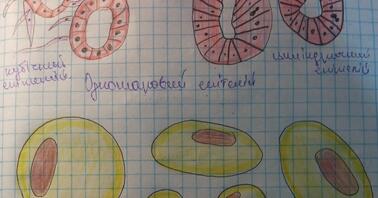 кубічний
епітелій
Одношаровий епітелій
циліндричний
епітелій